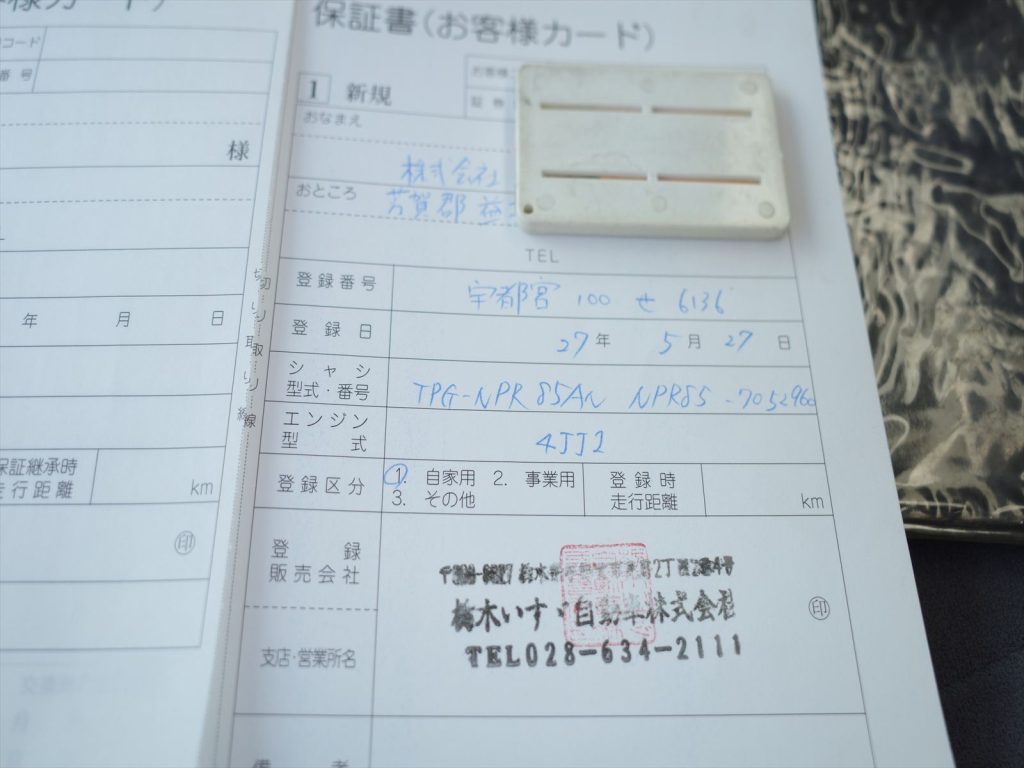 保証書(お客様カード)
1 新規
お客様
証券
おなまえ
株式会社
おところ
芳賀郡 益
TEL
登録番号 宇都宮 100 せ 6136
登録日 27年 5月 27日
シャシ
型式・番号 TPG-NPR85AN NPR85-7052960
エンジン
型式 4JJ1
登録区分 1. 自家用 2. 事業用
3. その他
登録時
走行距離 km
登録
販売会社
栃木いすゞ自動車株式会社
TEL028-634-2111
印
支店・営業所名
備考
コード
番号
様
年 月 日
切り取り線
保証継承時
走行距離 km
印